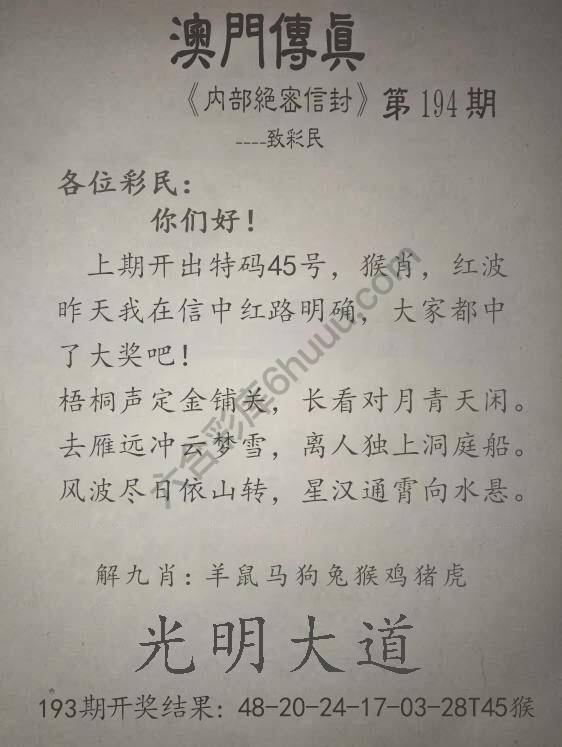 澳門傳眞
《内部絕密信封》第194期
----致彩民
各位彩民：
你们好！
上期开出特码45号，猴肖，红波
昨天我在信中红路明确，大家都中
了大奖吧！
梧桐声定金铺关，长看对月青天闲。
去雁远冲云梦雪，离人独上洞庭船。
风波尽日依山转，星汉通霄向水悬。
解九肖：羊鼠马狗兔猴鸡猪虎
光明大道
193期开奖结果：48-20-24-17-03-28T45猴
六合彩库6huuu.com